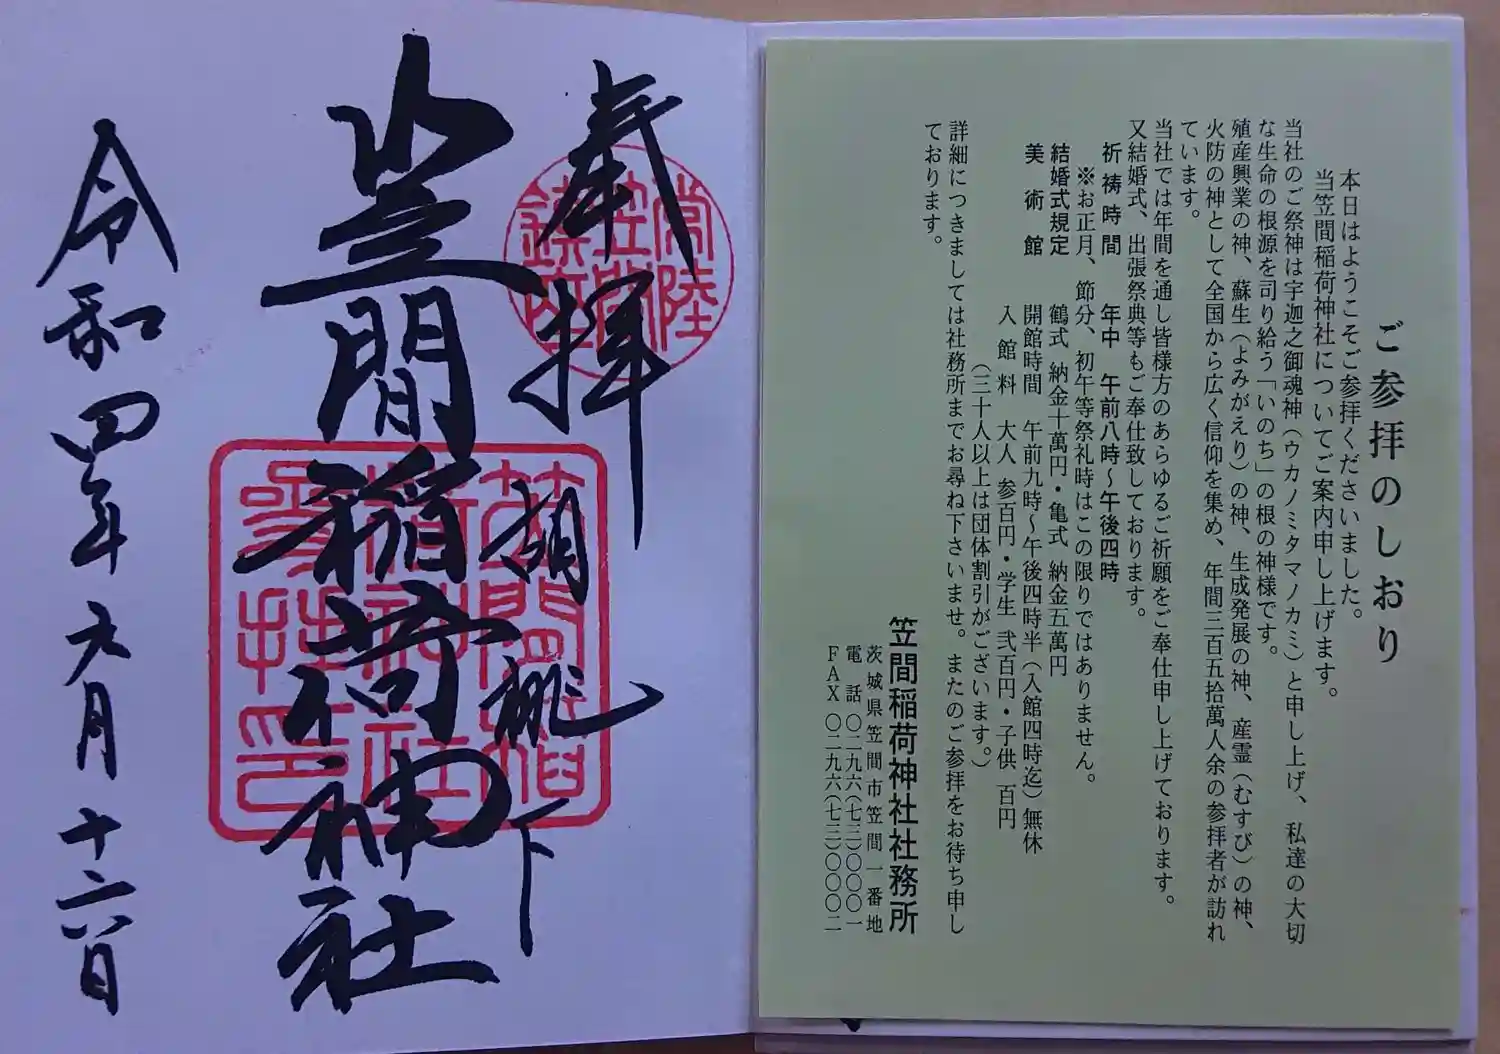 ご参拝のしおり
本日はようこそご参拝くださいました。
当笠間稲荷神社についてご案内申し上げます。
当社のご祭神は宇迦之御魂神（ウカノミタマノカミ）と申し上げ、私達の大切
な生命の根源を司り給う「いのち」の根の神様です。
殖産興業の神、蘇生（よみがえり）の神、生成発展の神、産霊（むすび）の神、
火防の神として全国から広く信仰を集め、年間三百五拾萬人余の参拝者が訪れ
ています。
当社では年間を通し皆様方のあらゆるご祈願をご奉仕申し上げております。
又結婚式、出張祭典等もご奉仕致しております。
祈祷時間 年中 午前八時～午後四時
※お正月、節分、初午等祭礼時はこの限りではありません。
結婚式規定 鶴式 納金十萬円・亀式 納金五萬円
美術館 開館時間 午前九時～午後四時半（入館四時迄）無休
入館料 大人 参百円・学生 弐百円・子供 百円
（三十人以上は団体割引がございます。）
詳細につきましては社務所までお尋ね下さいませ。またのご参拝をお待ち申し
ております。
笠間稲荷神社社務所
茨城県笠間市笠間一番地
電話 〇二九六（七三）〇〇〇一
FAX 〇二九六（七三）〇〇〇二
奉拝
常陸
笠間
鎮座
胡桃下
笠間稲荷神社
笠間稲
荷神社
参拝印
令和四年元月十六日